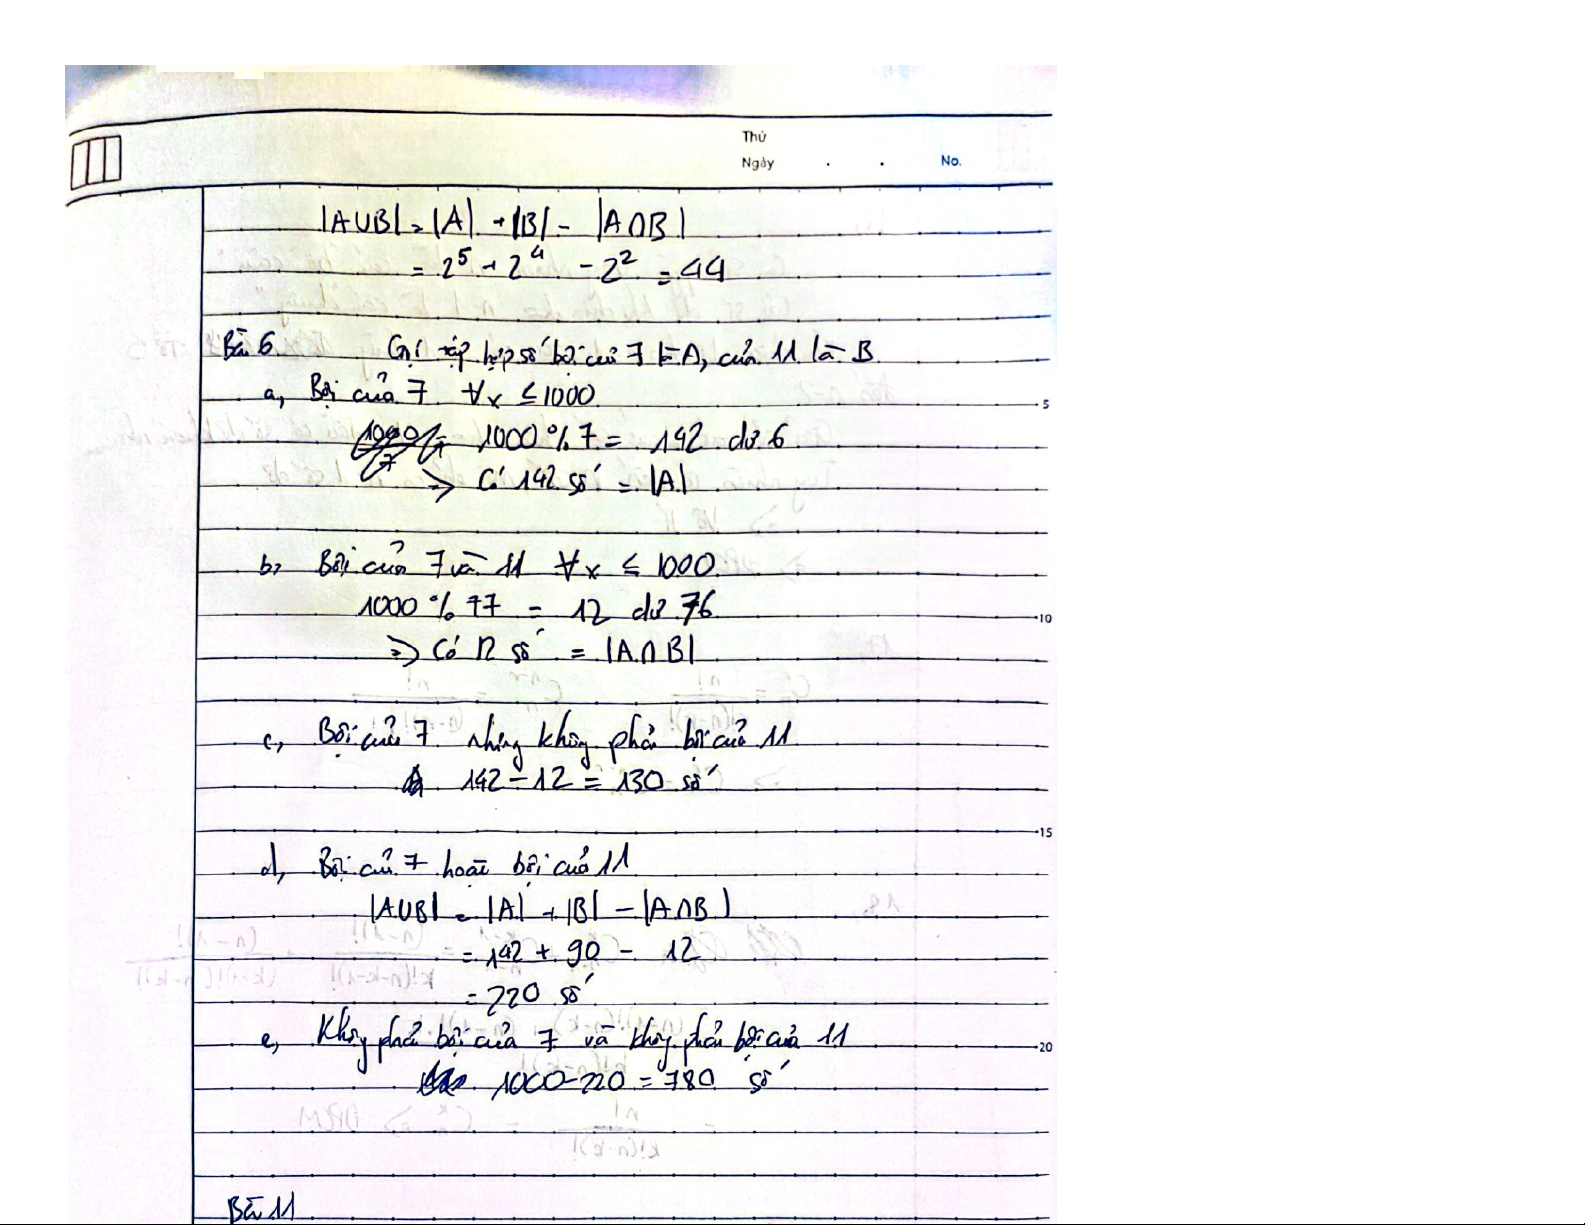 Thứ
Ngày . . No.
|A∪B| = |A| + |B| - |A∩B|
= 2⁵ + 2⁴ - 2² = 44
Bài 6. Gọi tập hợp số bội của 7 là A, của 11 là B
a, Bội của 7 ∀x ≤ 1000
1000 % 7 = 142 dư 6
=> Có 142 số = |A|
5
b, Bội của 7 và 11 ∀x ≤ 1000
1000 % 77 = 12 dư 76
10
=> Có 12 số = |A∩B|
c, Bội của 7 nhưng không phải bội của 11
142 - 12 = 130 số
15
d, Bội của 7 hoặc bội của 11
|A∪B| = |A| + |B| - |A∩B|
= 142 + 90 - 12
= 220 số
e, Không phải bội của 7 và không phải bội của 11
20
1000 - 220 = 780 số
Bài 11